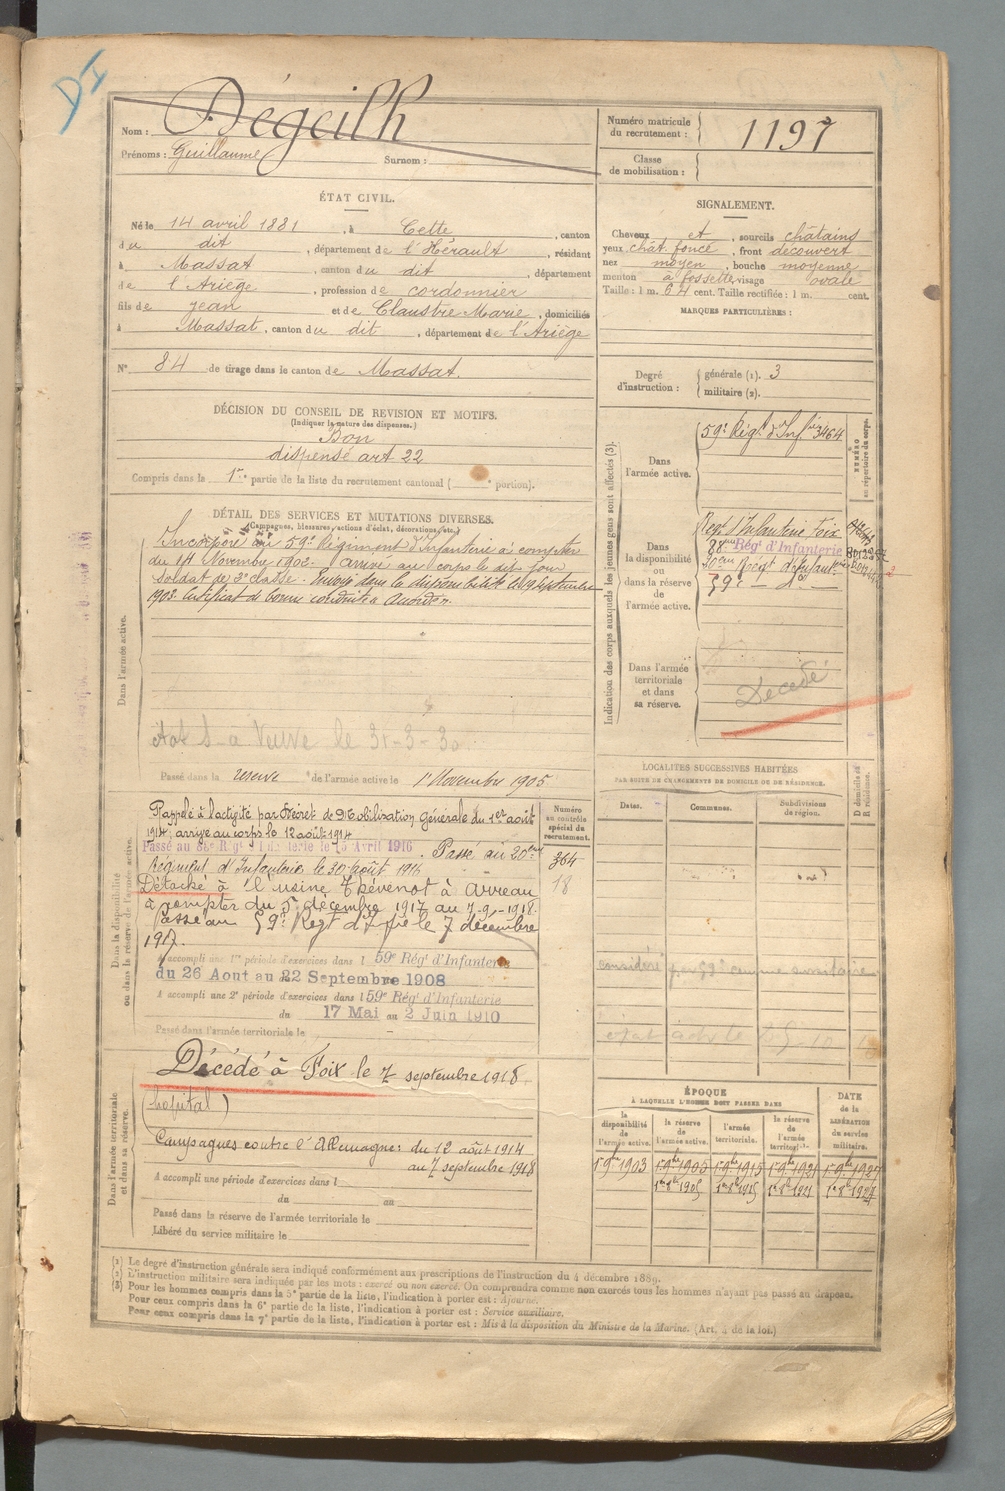 DI
Nom : Dégeilh
Prénoms : Guillaume Surnom :
Numéro matricule du recrutement : 1197
Classe de mobilisation :
ÉTAT CIVIL.
Né le 14 avril 1881, à Cette, canton
du dit, département de l'Hérault, résidant
à Massat, canton du dit, département
de l'Ariège, profession de cordonnier
fils de Jean et de Claustre Marie, domiciliés
à Massat, canton du dit, département de l'Ariège
N° 84 de tirage dans le canton de Massat.
SIGNALEMENT.
Cheveux et, sourcils châtains
yeux chât. foncé, front découvert
nez moyen, bouche moyenne
menton à fossette, visage ovale
Taille : 1 m. 64 cent. Taille rectifiée : 1 m. cent.
MARQUES PARTICULIÈRES :
Degré d'instruction : générale (1). 3
militaire (2).
DÉCISION DU CONSEIL DE REVISION ET MOTIFS.
(Indiquer la nature des dispenses.)
Bon
dispensé art 22
Compris dans la 1re partie de la liste du recrutement cantonal ( portion).
DÉTAIL DES SERVICES ET MUTATIONS DIVERSES.
(Campagnes, blessures, actions d'éclat, décorations, etc.)
Dans l'armée active.
Incorporé au 59e Régiment d'Infanterie à compter
du 14 Novembre 1902. arrivé au corps le dit jour
soldat de 2e classe. Envoyé dans la disponibilité le 19 Septembre
1903. Certificat de bonne conduite accordé.
Veuve le 31-3-30
Passé dans la réserve de l'armée active le 1er Novembre 1905
Indication des corps auxquels les jeunes gens sont affectés (3).
NUMÉRO au répertoire du corps.
Dans l'armée active.
59e Régt d'Infie 3464
Dans la disponibilité ou dans la réserve de l'armée active.
Régt d'Infanterie Foix
88me Régt d'Infanterie
20eme Régt d'Infant.
59e do
Dans l'armée territoriale et dans sa réserve.
Décédé
LOCALITÉS SUCCESSIVES HABITÉES
PAR SUITE DE CHANGEMENTS DE DOMICILE OU DE RÉSIDENCE.
Dates.
Communes.
Subdivisions de région.
D domicile R résidence.
Dans la disponibilité ou dans la réserve de l'armée active.
Numéro au contrôle spécial du recrutement.
364
18
Rappelé à l'activité par Décret de Mobilisation générale du 1er août
1914, arrivé au corps le 12 août 1914
Passé au 88e Régt d'Infanterie le 15 Avril 1916. Passé au 20eme
Régiment d'Infanterie le 30 août 1916
Détaché à l'usine Thévenot à Arreau
à compter du 5 décembre 1917 au 7-9-1918.
Passé au 59e Régt d'Infie le 7 décembre
1917.
A accompli une 1re période d'exercices dans l 59e Régt d'Infanterie
du 26 Aout au 22 Septembre 1908
A accompli une 2e période d'exercices dans l 59e Régt d'Infanterie
du 17 Mai au 2 Juin 1910
Passé dans l'armée territoriale le
Dans l'armée territoriale et dans sa réserve.
Décédé à Foix le 7 septembre 1918
(hôpital)
Campagnes contre l'Allemagne: du 12 août 1914
au 7 septembre 1918
A accompli une période d'exercices dans l
du au
Passé dans la réserve de l'armée territoriale le
Libéré du service militaire le
ÉPOQUE
À LAQUELLE L'HOMME DOIT PASSER DANS
la disponibilité de l'armée active.
la réserve de l'armée active.
l'armée territoriale.
la réserve de l'armée territoriale
DATE de la LIBÉRATION du service militaire.
1er 9bre 1903 1er 9bre 1905 1er 9bre 1915 1er 9bre 1921 1er 9bre 1927
(1) Le degré d'instruction générale sera indiqué conformément aux prescriptions de l'instruction du 4 décembre 1889.
(2) L'instruction militaire sera indiquée par les mots : exercé ou non exercé. On comprendra comme non exercés tous les hommes n'ayant pas passé au drapeau.
(3) Pour les hommes compris dans la 5e partie de la liste, l'indication à porter est : Ajourné.
Pour ceux compris dans la 6e partie de la liste, l'indication à porter est : Service auxiliaire.
Pour ceux compris dans la 7e partie de la liste, l'indication à porter est : Mis à la disposition du Ministre de la Marine. (Art. 4 de la loi.)